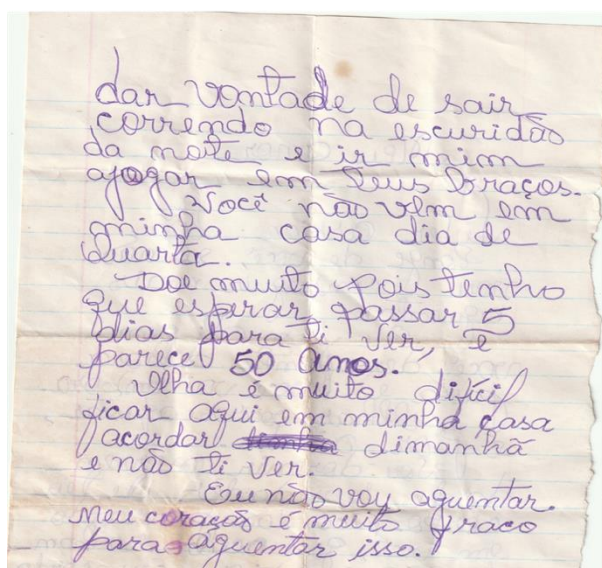 dar vontade de sair
correndo na escuridão
da noite e ir mim
ajogar em teus braços.
Você não vem em
minha casa dia de
quarta.
Doe muito pois tenho
que esperar passar 5
dias para ti ver, e
parece 50 anos.
Olha é muito difícil
ficar aqui em minha casa
acordar dimanhã
e não ti ver.
Eu não vou aguentar.
Meu coração é muito fraco
para aguentar isso.